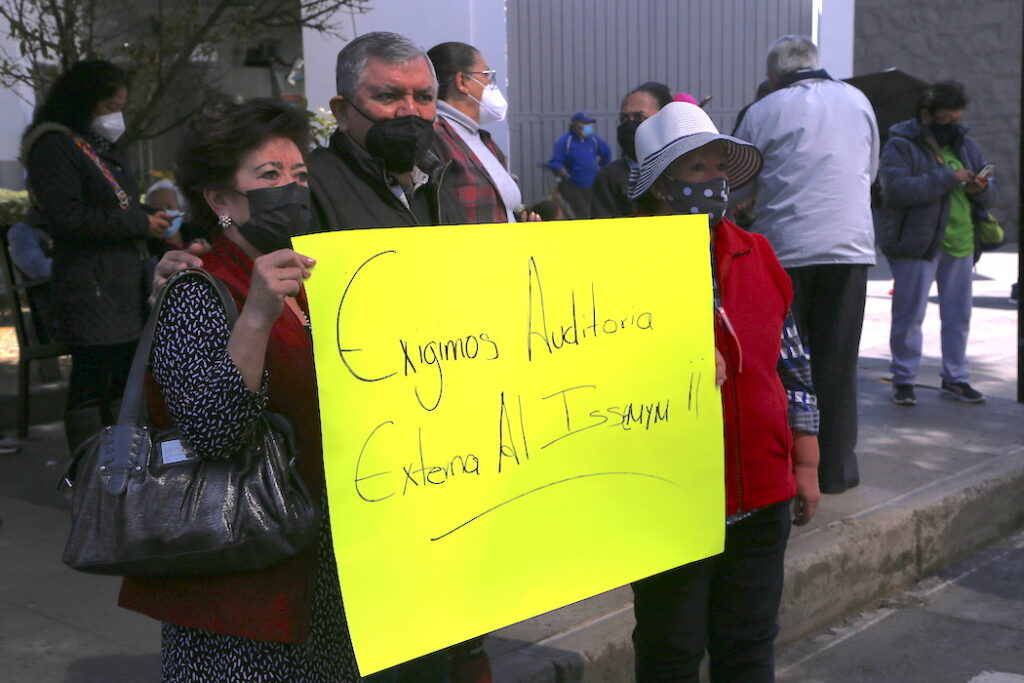 Exigimos Auditoria
Externa Al ISSEMYM !!